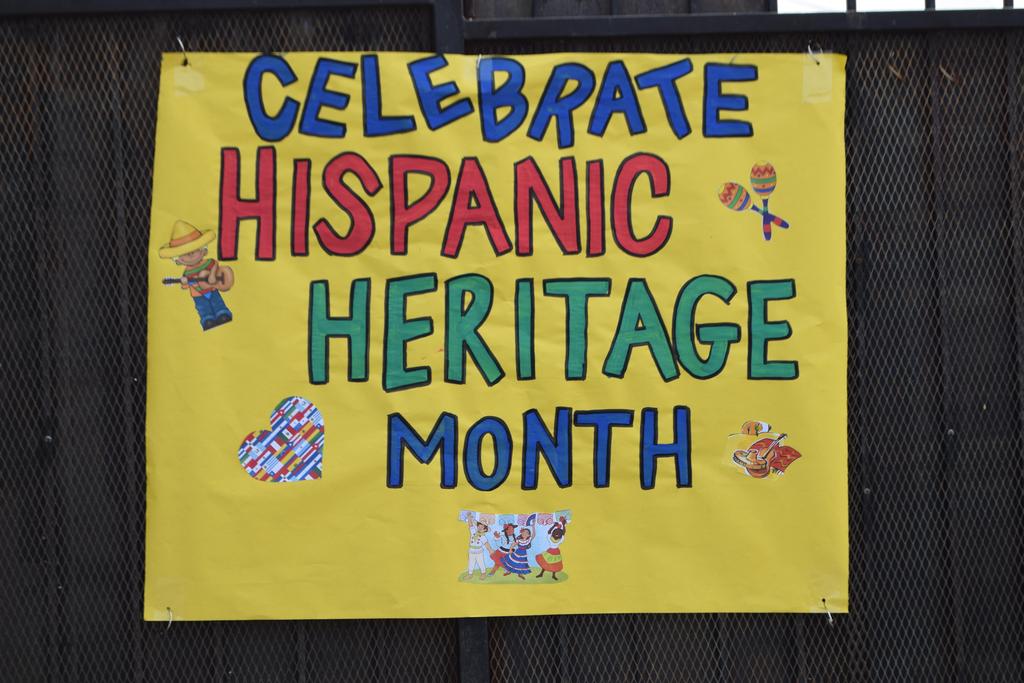 CELEBRATE
HISPANIC
HERITAGE
MONTH